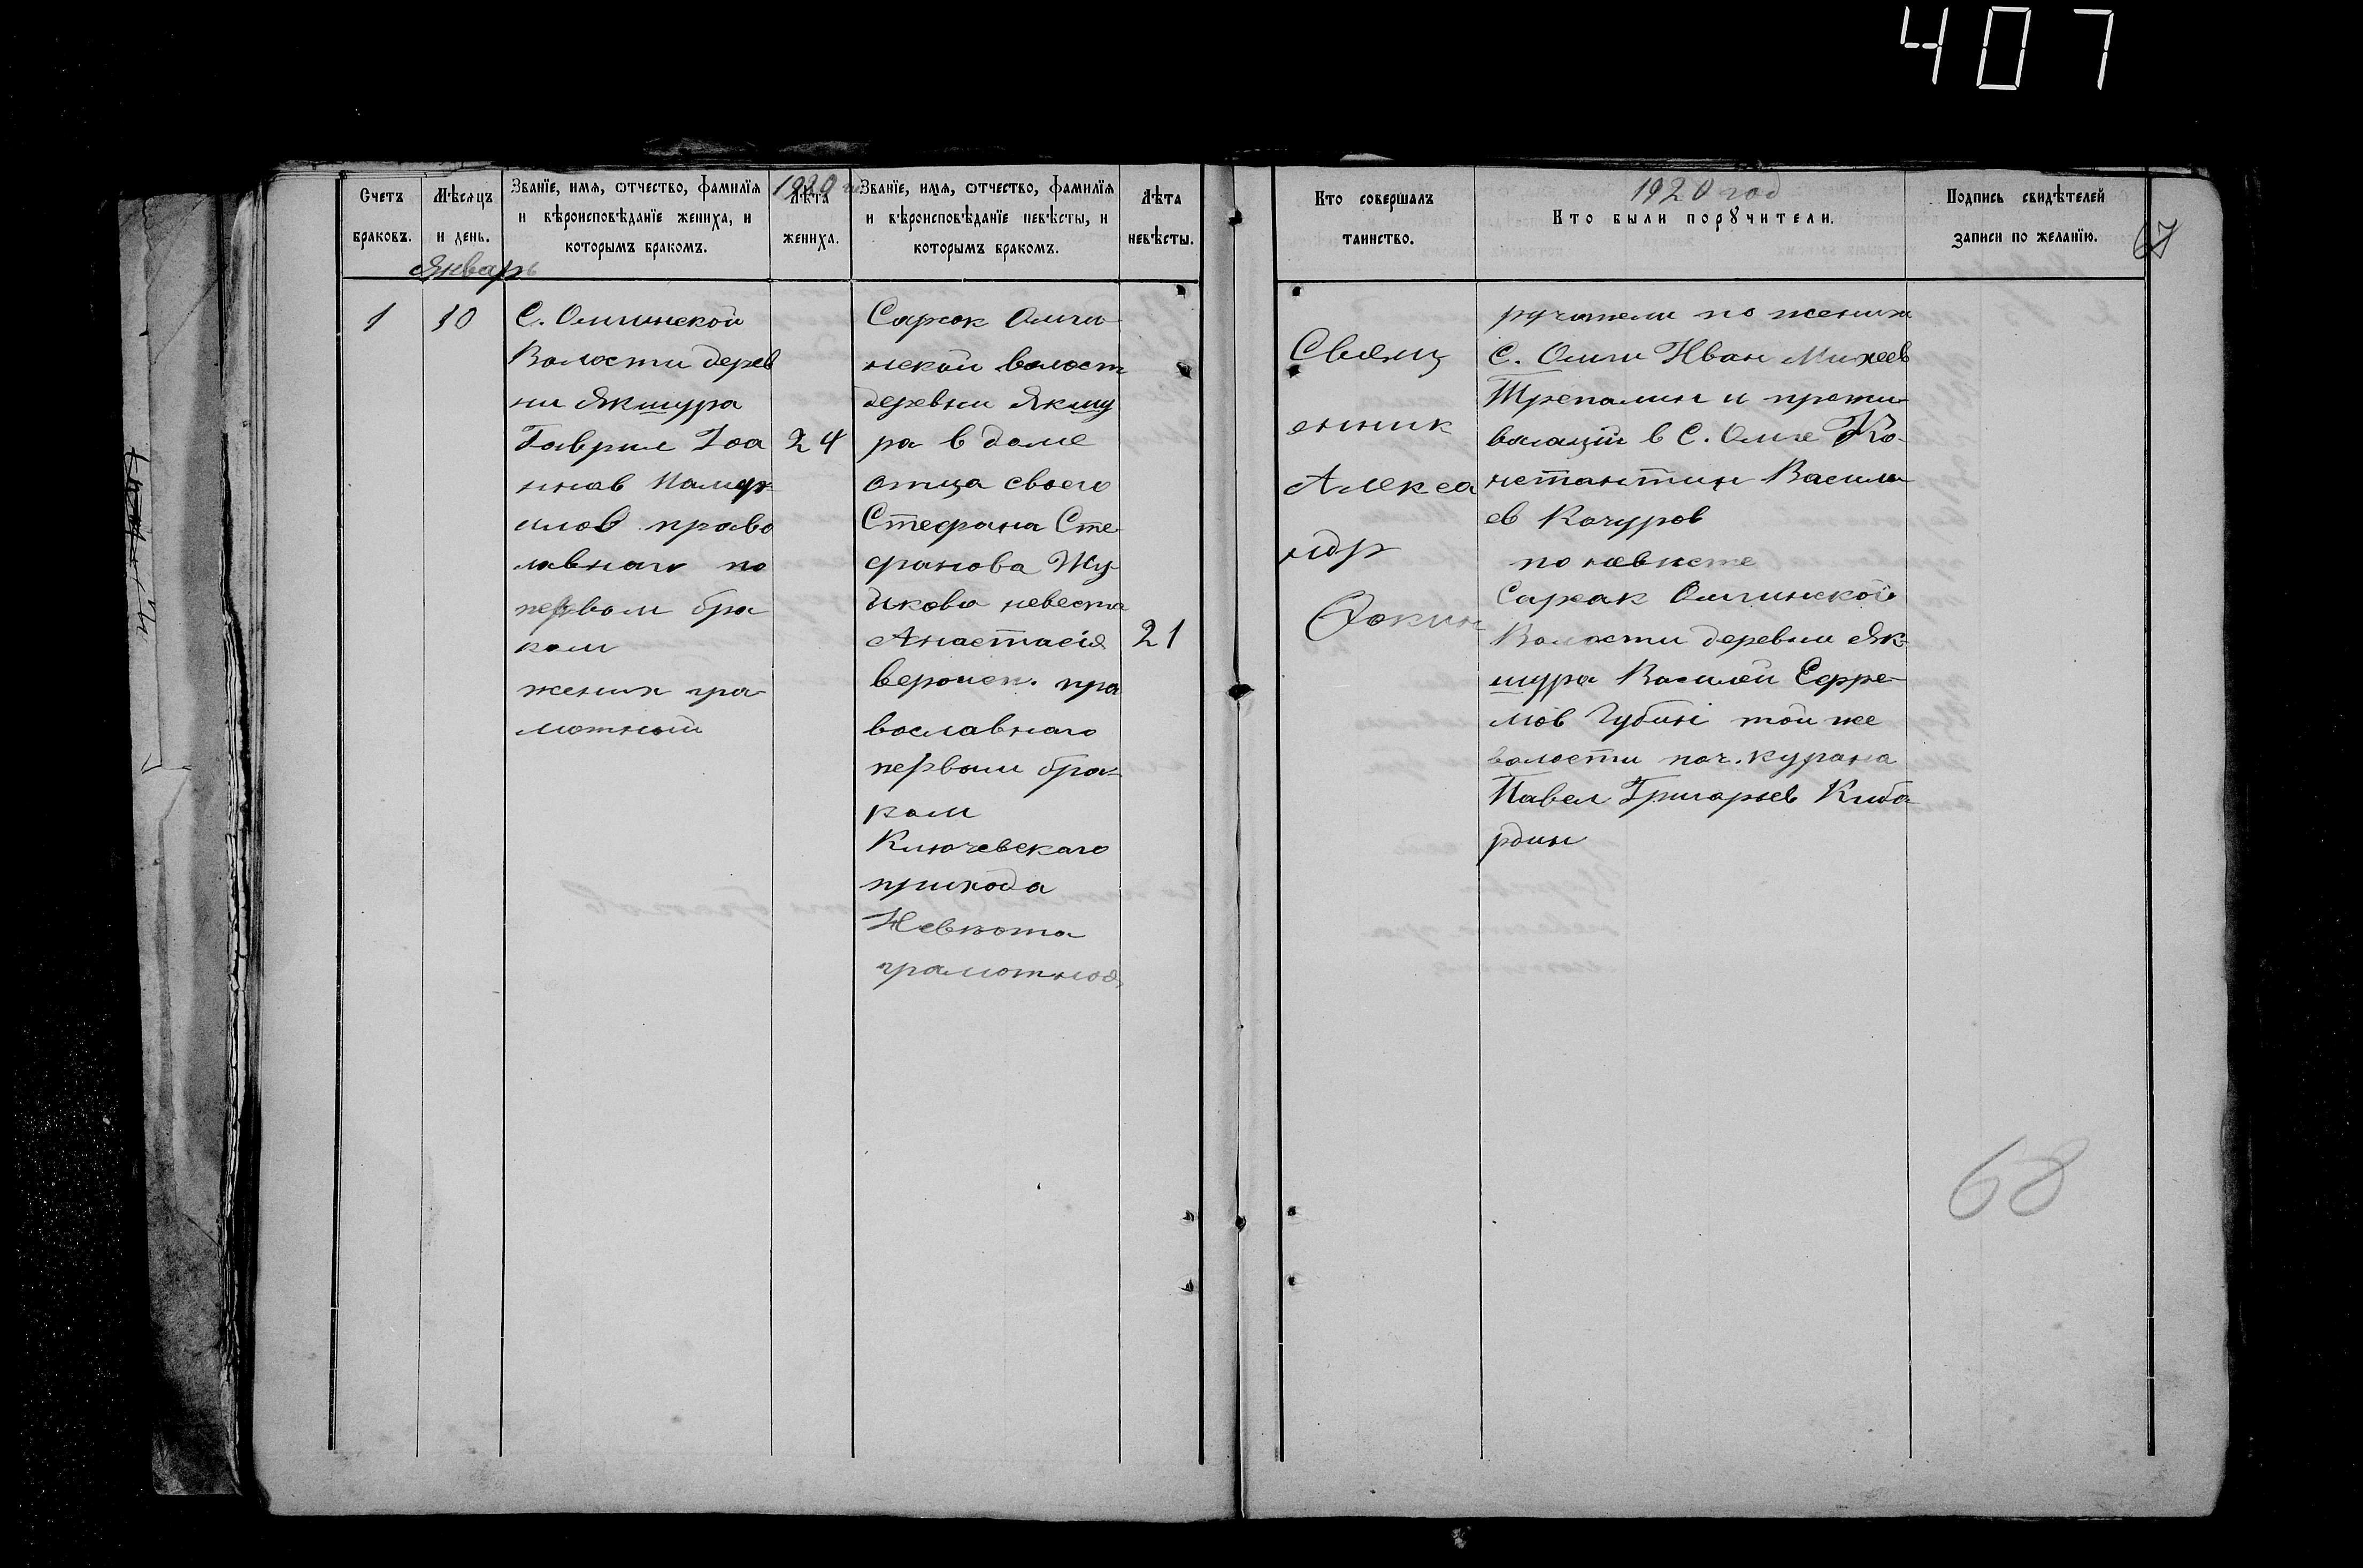 407
1920 г.
Счетъ браковъ.
Мѣсяцъ и день.
Званїе, имя, ѡтчество, фамилїя и вѣроисповѣданїе жениха, и которымъ бракомъ.
Лѣта жениха.
Званїе, имя, ѡтчество, фамилїя и вѣроисповѣданїе невѣсты, и которымъ бракомъ.
Лѣта невѣсты.
Январь
1
10
С. Омгинской
Волости дерев
ни Якшура
Гаврил Iоа
ннов
илов право
лавнаго по
первом бра
ком
жених гра-
мотный
24
Сархок Омги-
нской волост
деревни Якшу
ра в доме
отца своего
Стефана Сте-
фанова Жу-
дикова невеста
Анастасiя
вероисп. пра
вославнаго
первым бра-
ком
Ключевскаго
прихода
Невѣста
грамотноя
21
1920 год
Кто совершалъ таинство.
Кто были порꙋчители.
Подпись свидѣтелей записи по желанїю.
67
Свящ
енник
Алекса
ндр
Фокин
ручители по жениха
С. Омги Иван Михеев
Трепалин и прожи-
вающий в С. Омге Ко-
нстантин Василь-
ев Качуров
по невисте
Сархак Омгинской
Волости деревни Як-
шура Василей Ефре-
мов Губинi той же
волости поч. курана
Павел Григорьев Киба
рдин
68